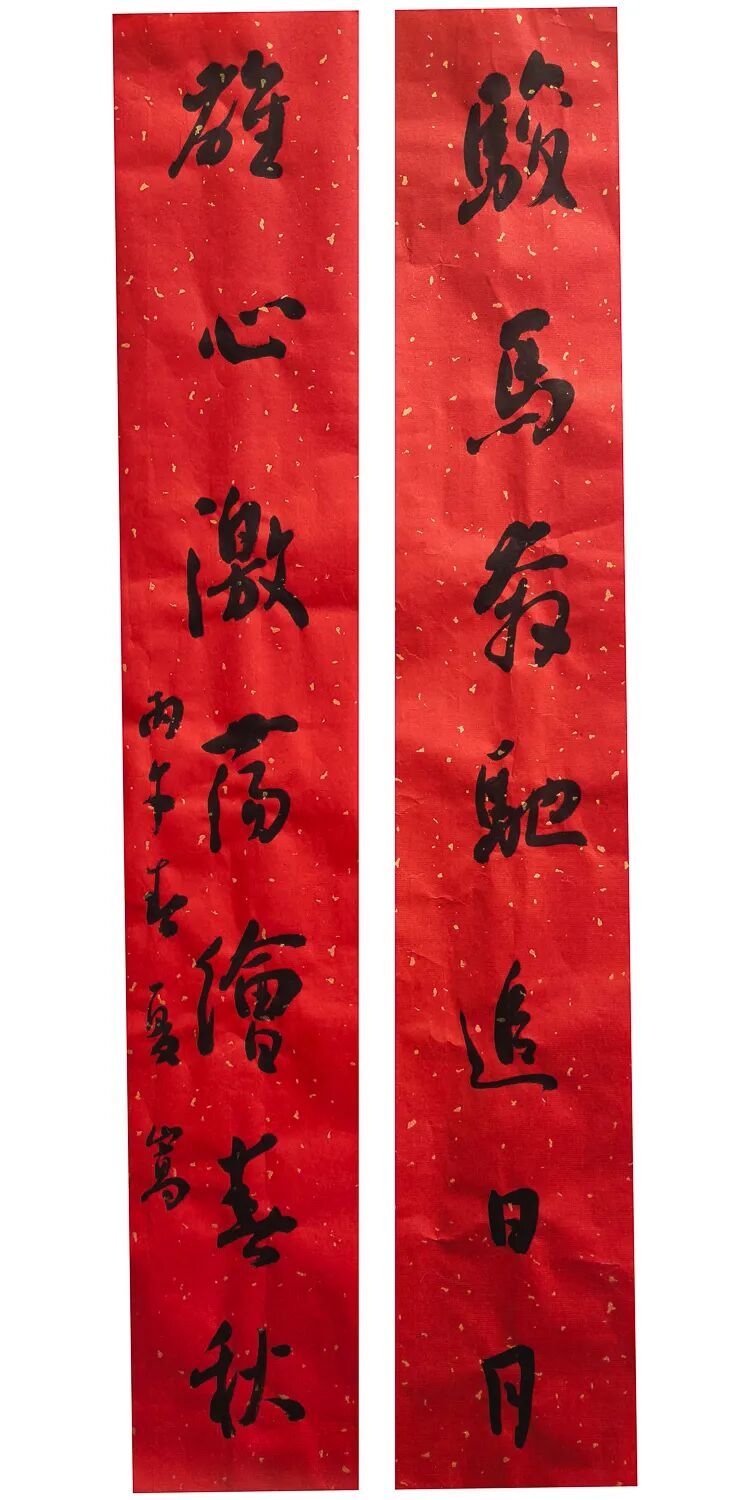 駿馬奔馳追日月
雄心激蕩繪春秋
丙午春 夏嵩